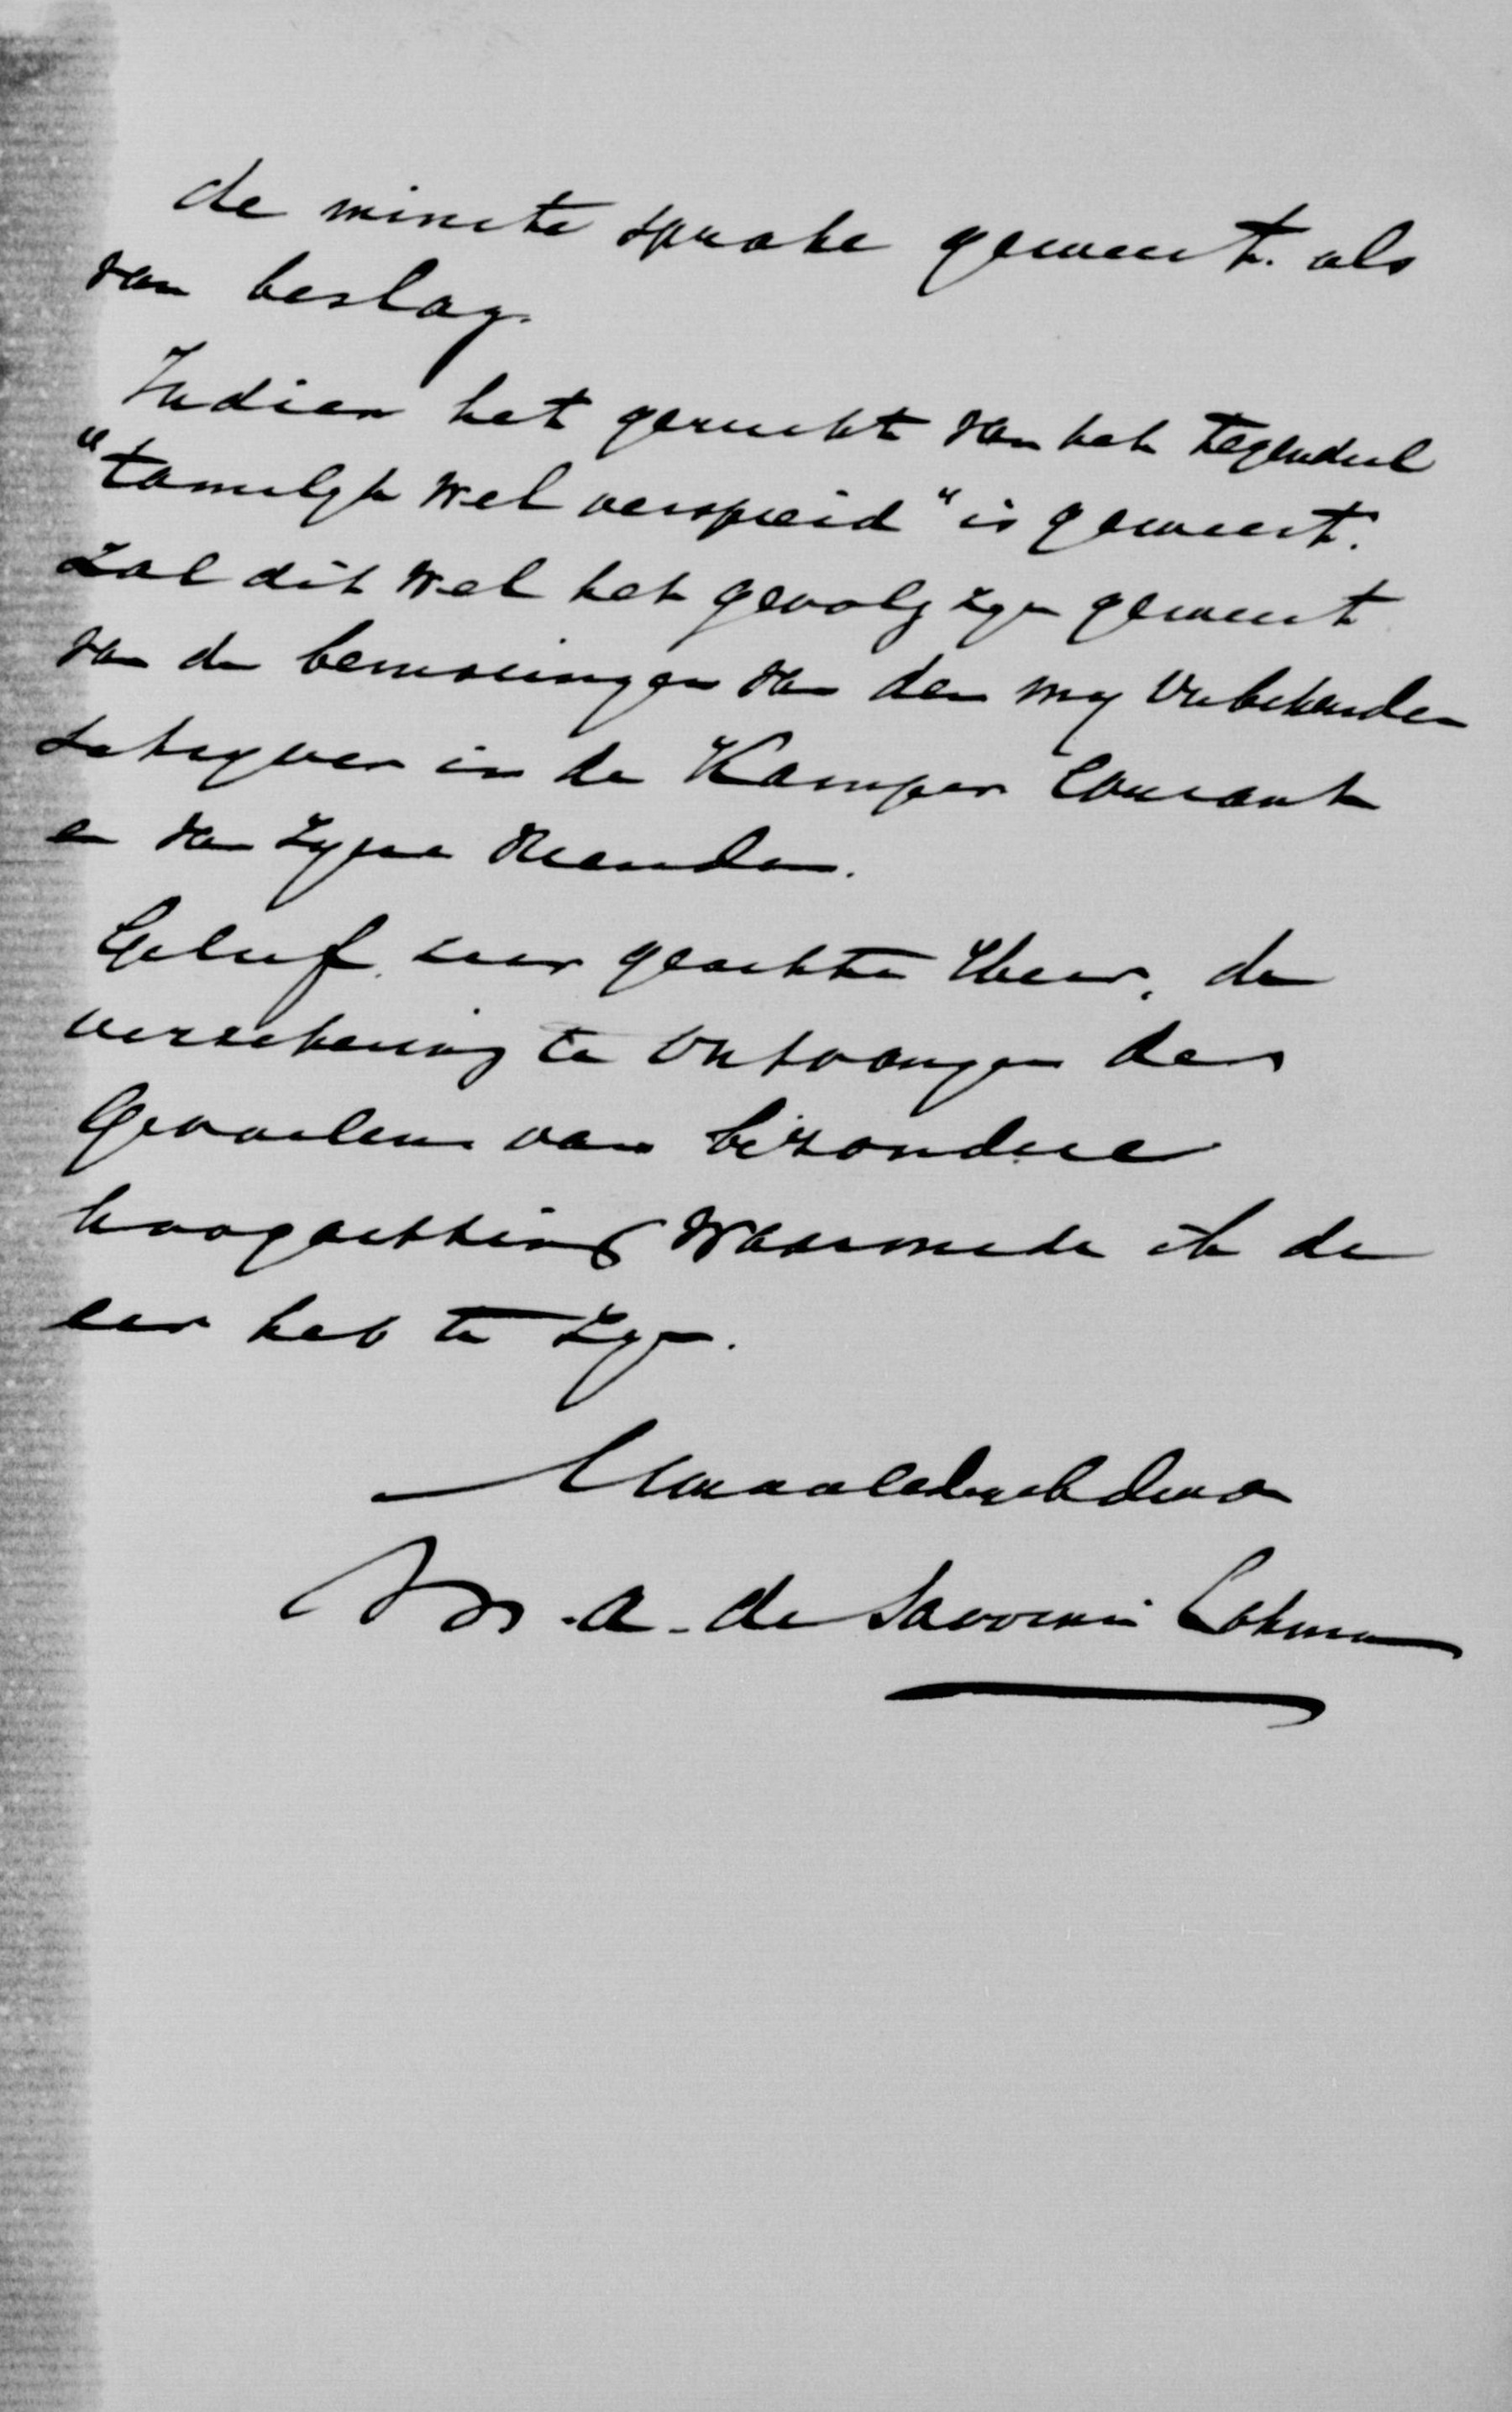 de minste sprake geweest als
van beslag.
Indien het gerucht van het tegendeel
"tamelijk wel verspreid" is geweest.
zal dit wel het gevolg zijn geweest
van de bemoeiingen van den mij onbekenden
schrijver in de Kamper Courant
en van zijne vrienden.
Geloof, zeer geachte Heer, de
verzekering te ontvangen der
gevoelens van bizondere
hoogachting waarmede ik de
eer heb te zijn.
Uwe
Mr. A. de Savornin Lohman